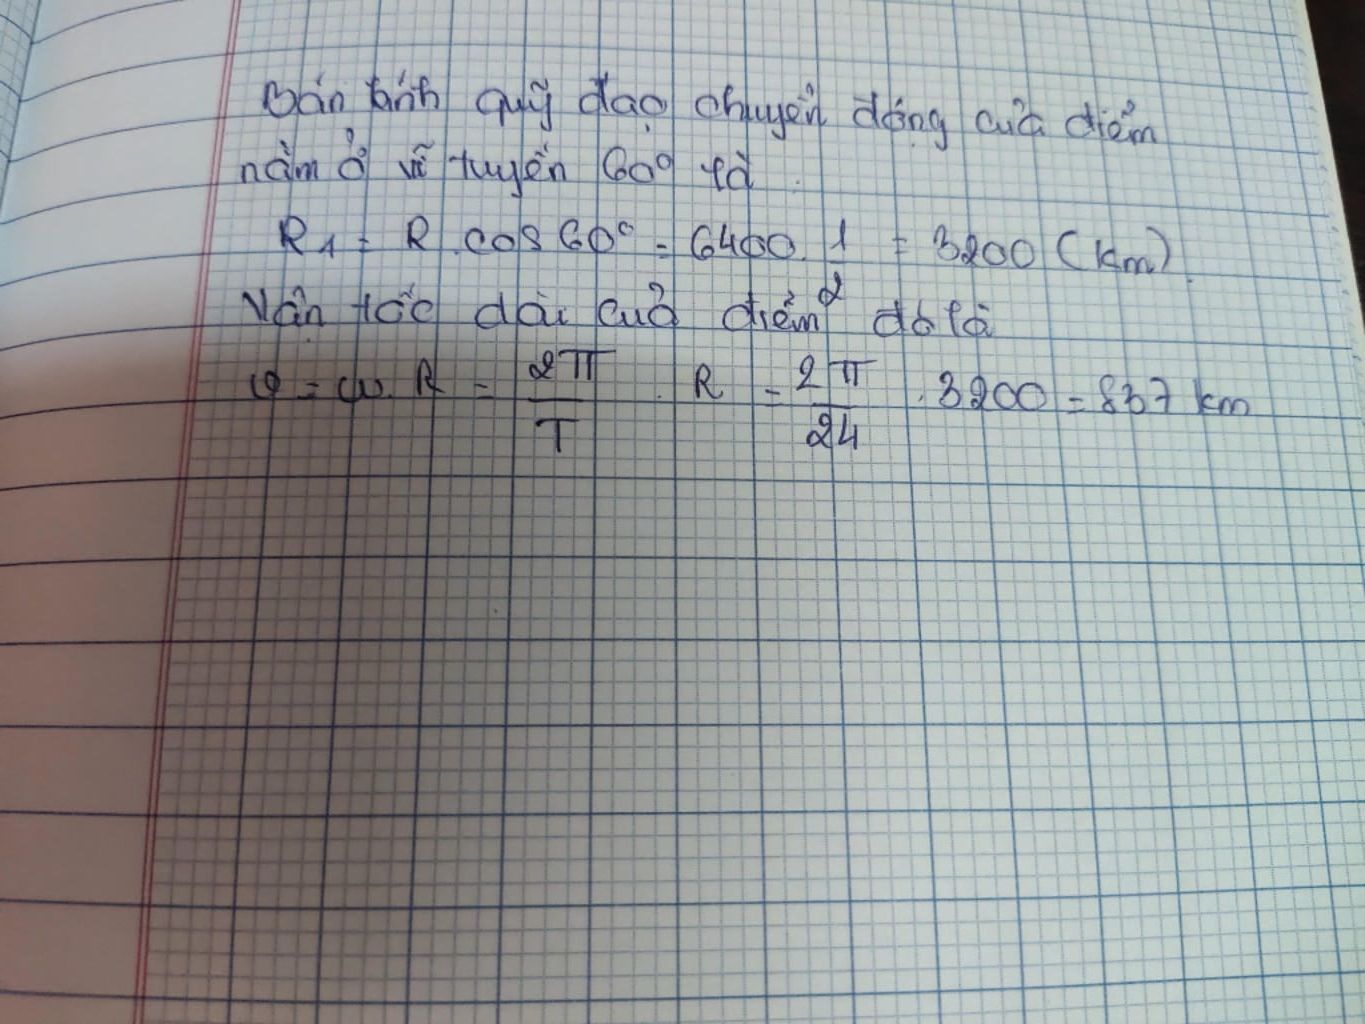 Bán kính quỹ đạo chuyển động của điểm
nằm ở vĩ tuyến 60° là.
R1 = R.cos60° = 6400.1/2 = 3200 (km).
Vận tốc dài của điểm đó là
v = ω.R = 2π/T . R = 2π/24 .3200 = 837 km